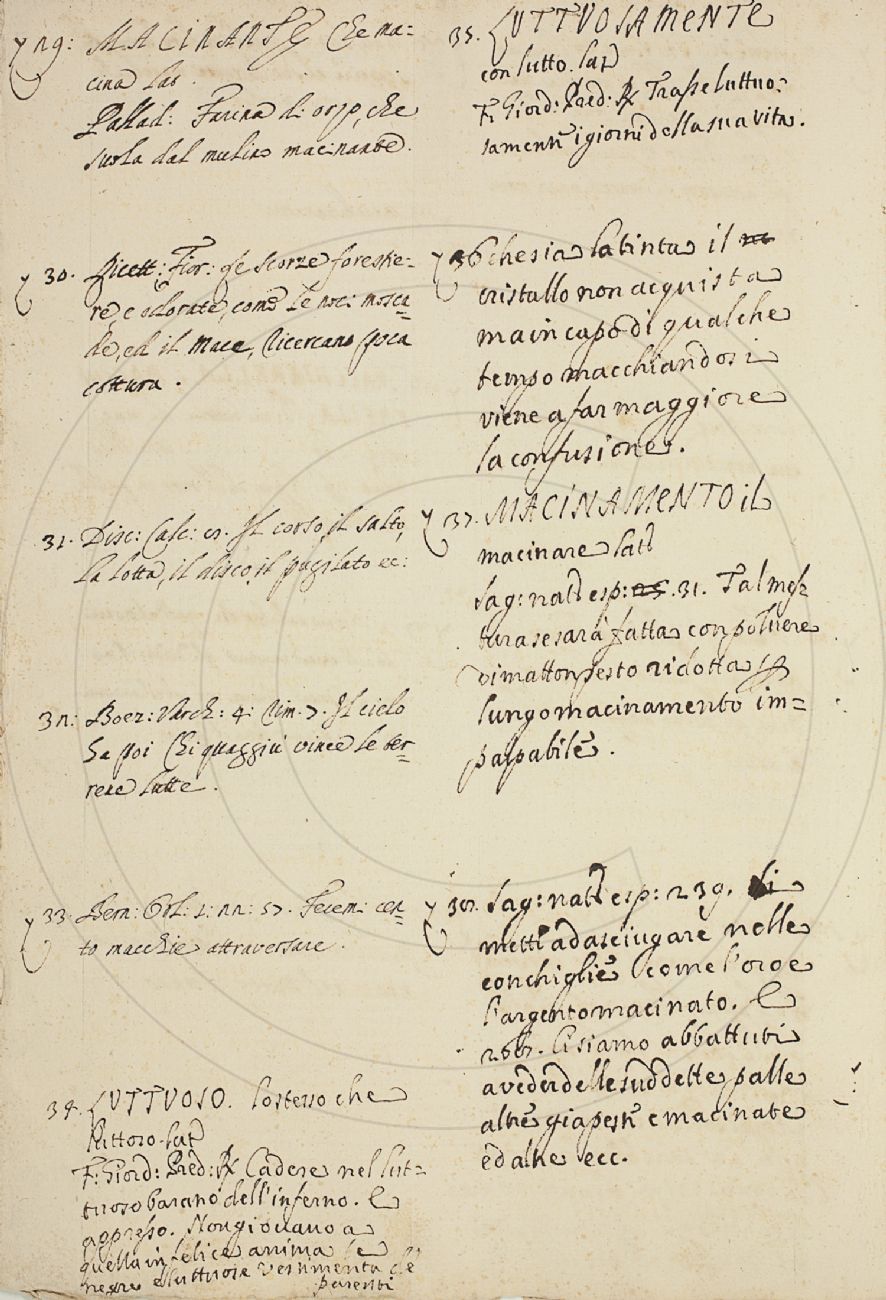 29: MACINANTE Che ma=
cina Lat.
Pallad: Farina di orzo, che
suola dal mulino macinante.
30. Ricett: Fior: Le scorze forestie=
re, e odorate, come le noci mosca=
de, ed il Mace, ricercano poca
cottura.
31. Disc: Calc: 25. Il corso, il salto,
la lotta, il disco, il pugilato ec:
32: Boez: Varch: 4: rim. 7. Il cielo
ha poi Chi quaggiù vince le ter=
rene lutte.
33. Bern: Orl: 1: 22: 57. Fecemi cen=
to macchie attraversare.
34. LUTTUOSO. Lo stesso che
Luttoso. Lat
F: Giord: Pred: R Cadere nel lut=
tuoso baratro dell'inferno. E
appresso. Non giovano a
quella infelice anima le
negre e luttuose vestimenta de'
parenti
35. LUTTUOSAMENTE
con lutto. Lat
F: Giord: Pred: R Trasse luttuo=
samente i giorni della sua vita.
36 chesia la tinta il
cristallo non acquista
ma in capo di qualche
tempo macchiandosi
viene a far maggiore
la confusione.
37. MACINAMENTO il
macinare Lat
Sag: nat esp: 31. Tal mes=
tura se sarà fatta con polvere
di matton pesto ridotta p
lungo macinamento im=
palpabile.
38. Sag: nat esp: 239. Si
mette ad asciugare nelle
conchiglie come l'oro e
l'argento macinato. E
266. Ci siamo abbattuti
a veder delle suddette palle
altre già peste e macinate
ed altre ecc.